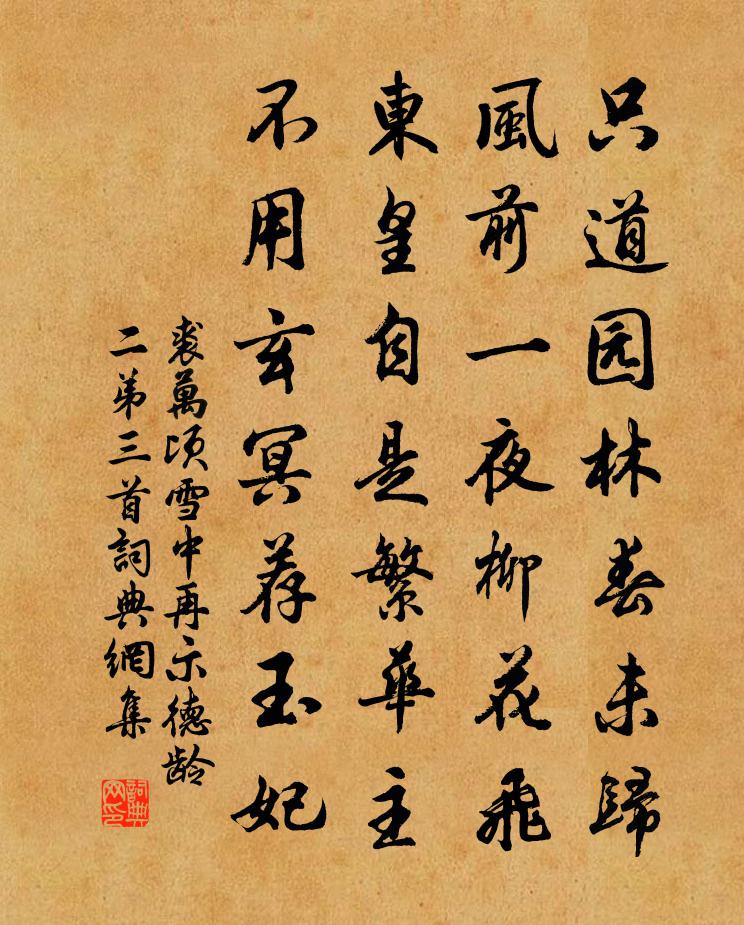 只道园林春未歸
風前一夜柳花飛
東皇自是繁華主
不用玄冥荐玉妃
裘萬頃雪中再示德龄
二第三首詞典網集
詞典网印